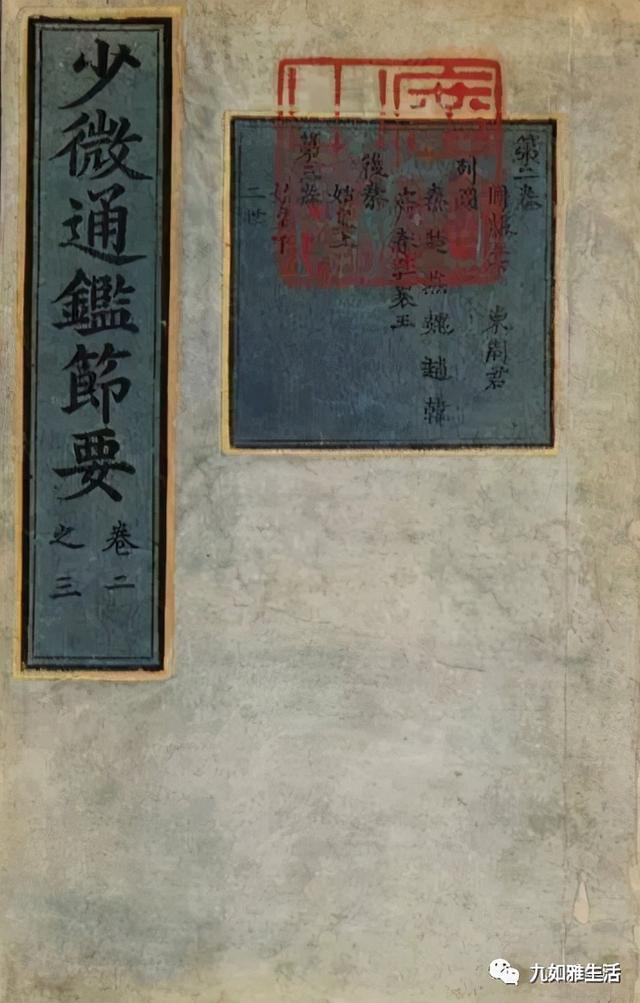 少微通鑑節要
卷二
之三
第二卷
東周君
列國
秦楚燕魏趙韓
後秦
始皇上
第三卷
二世
九如雅生活